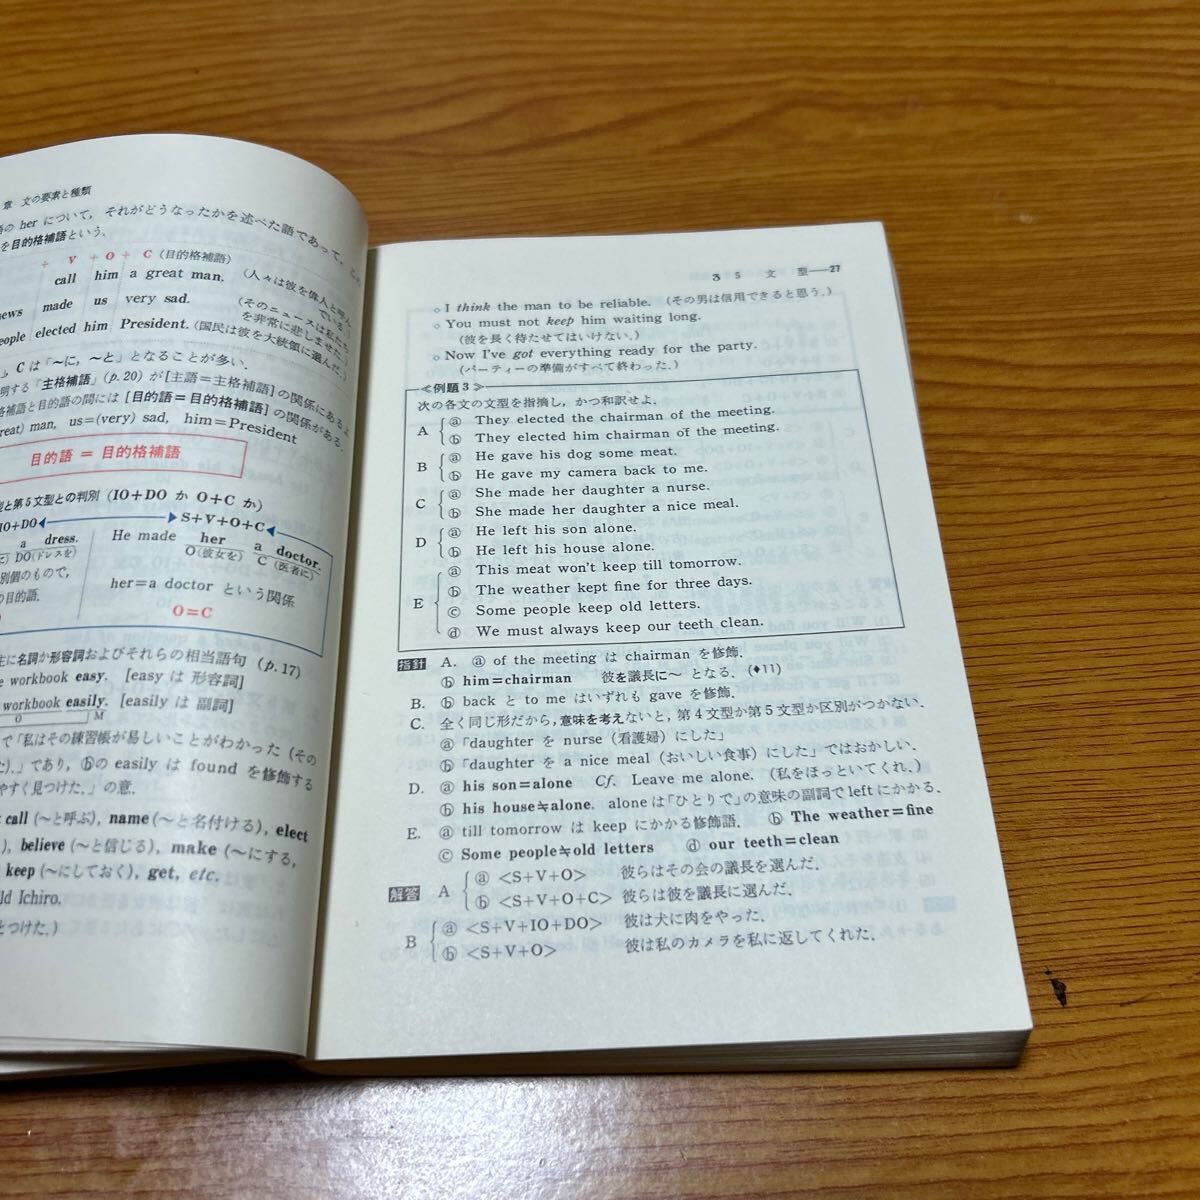 章 文の要素と種類
語の her について，それがどうなったかを述べた語であって，この
を目的格補語という．
+ V + O + C (目的格補語)
call him a great man. (人々は彼を偉人と呼んでいる.)
news made us very sad. (そのニュースは私たちを非常に悲しませた.)
people elected him President. (国民は彼を大統領に選んだ.)
，C は「〜に，〜と」となることが多い．
明する「主格補語」(p.20) が［主語＝主格補語］の関係にあるよ
格補語と目的語の間には［目的語＝目的格補語］の関係がある．
great) man, us=(very) sad, him=President
目的語 ＝ 目的格補語
型と第5文型との判別 (IO+DO か O+C か)
IO+DO S+V+O+C
a dress. He made her a doctor.
DO(ドレスを) O(彼女を) C (医者に)
別個のもので， her=a doctor という関係
の目的語． O=C
主に名詞か形容詞およびそれらの相当語句 (p.17)
e workbook easy. [easy は 形容詞]
workbook easily. [easily は 副詞]
O M
で「私はその練習帳が易しいことがわかった (その
た).」であり，ⓑの easily は found を修飾する
やすく見つけた.」の意．
call (〜と呼ぶ), name (〜と名付ける), elect
), believe (〜と信じる), make (〜にする,
keep (〜にしておく), get, etc.
ld Ichiro.
とつけた.)
§ 5 文 型——27
○ I think the man to be reliable. (その男は信用できると思う.)
○ You must not keep him waiting long.
(彼を長く待たせてはいけない.)
○ Now I've got everything ready for the party.
(パーティーの準備がすべて終わった.)
≪例題 3≫
次の各文の文型を指摘し，かつ和訳せよ．
A ⓐ They elected the chairman of the meeting.
ⓑ They elected him chairman of the meeting.
B ⓐ He gave his dog some meat.
ⓑ He gave my camera back to me.
C ⓐ She made her daughter a nurse.
ⓑ She made her daughter a nice meal.
D ⓐ He left his son alone.
ⓑ He left his house alone.
E ⓐ This meat won't keep till tomorrow.
ⓑ The weather kept fine for three days.
ⓒ Some people keep old letters.
ⓓ We must always keep our teeth clean.
指針 A. ⓐ of the meeting は chairman を修飾．
ⓑ him=chairman 彼を議長に〜 となる．(♦11)
B. ⓑ back と to me はいずれも gave を修飾．
C. 全く同じ形だから，意味を考えないと，第4文型か第5文型か区別がつかない．
ⓐ「daughter を nurse (看護婦) にした」
ⓑ「daughter を a nice meal (おいしい食事) にした」ではおかしい．
D. ⓐ his son=alone Cf. Leave me alone. (私をほっといてくれ.)
ⓑ his house≒alone. alone は「ひとりで」の意味の副詞で left にかかる．
E. ⓐ till tomorrow は keep にかかる修飾語． ⓑ The weather=fine
ⓒ Some people≒old letters ⓓ our teeth=clean
解答 A ⓐ <S+V+O> 彼らはその会の議長を選んだ．
ⓑ <S+V+O+C> 彼らは彼を議長に選んだ．
B ⓐ <S+V+IO+DO> 彼は犬に肉をやった．
ⓑ <S+V+O> 彼は私のカメラを私に返してくれた．